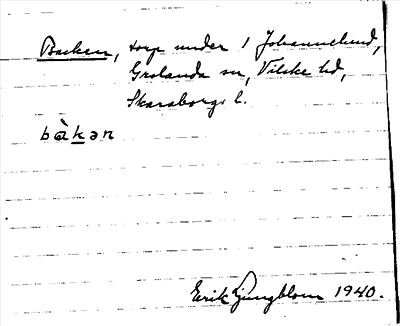 Backen, torp under 1 Johannelund,
Grolanda sn, Vilske hd,
Skaraborgs l.
bàkən
Erik Ljungblom 1940.